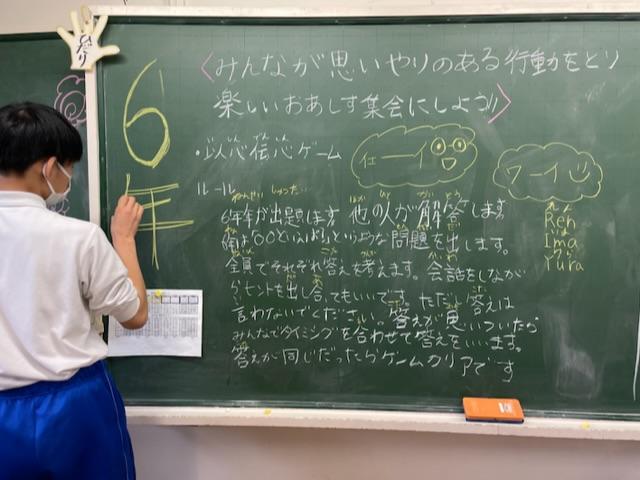 6年
〈みんなが思いやりのある行動をとり
楽しいおあしす集会にしよう!!〉
・以心伝心ゲーム
イエーイ
ワーイ
Ren
Ima
Yura
ルール
6年生が出題します。他の人が解答します。
例は「〇〇といえば」というような問題を出します。
全員でそれぞれ答えを考えます。会話をしなが
らヒントを出し合ってもいいです。ただし、答えは
言わないでください。答えが思いついたら
みんなでタイミングを合わせて答えをいいます。
答えが同じだったらゲームクリアです